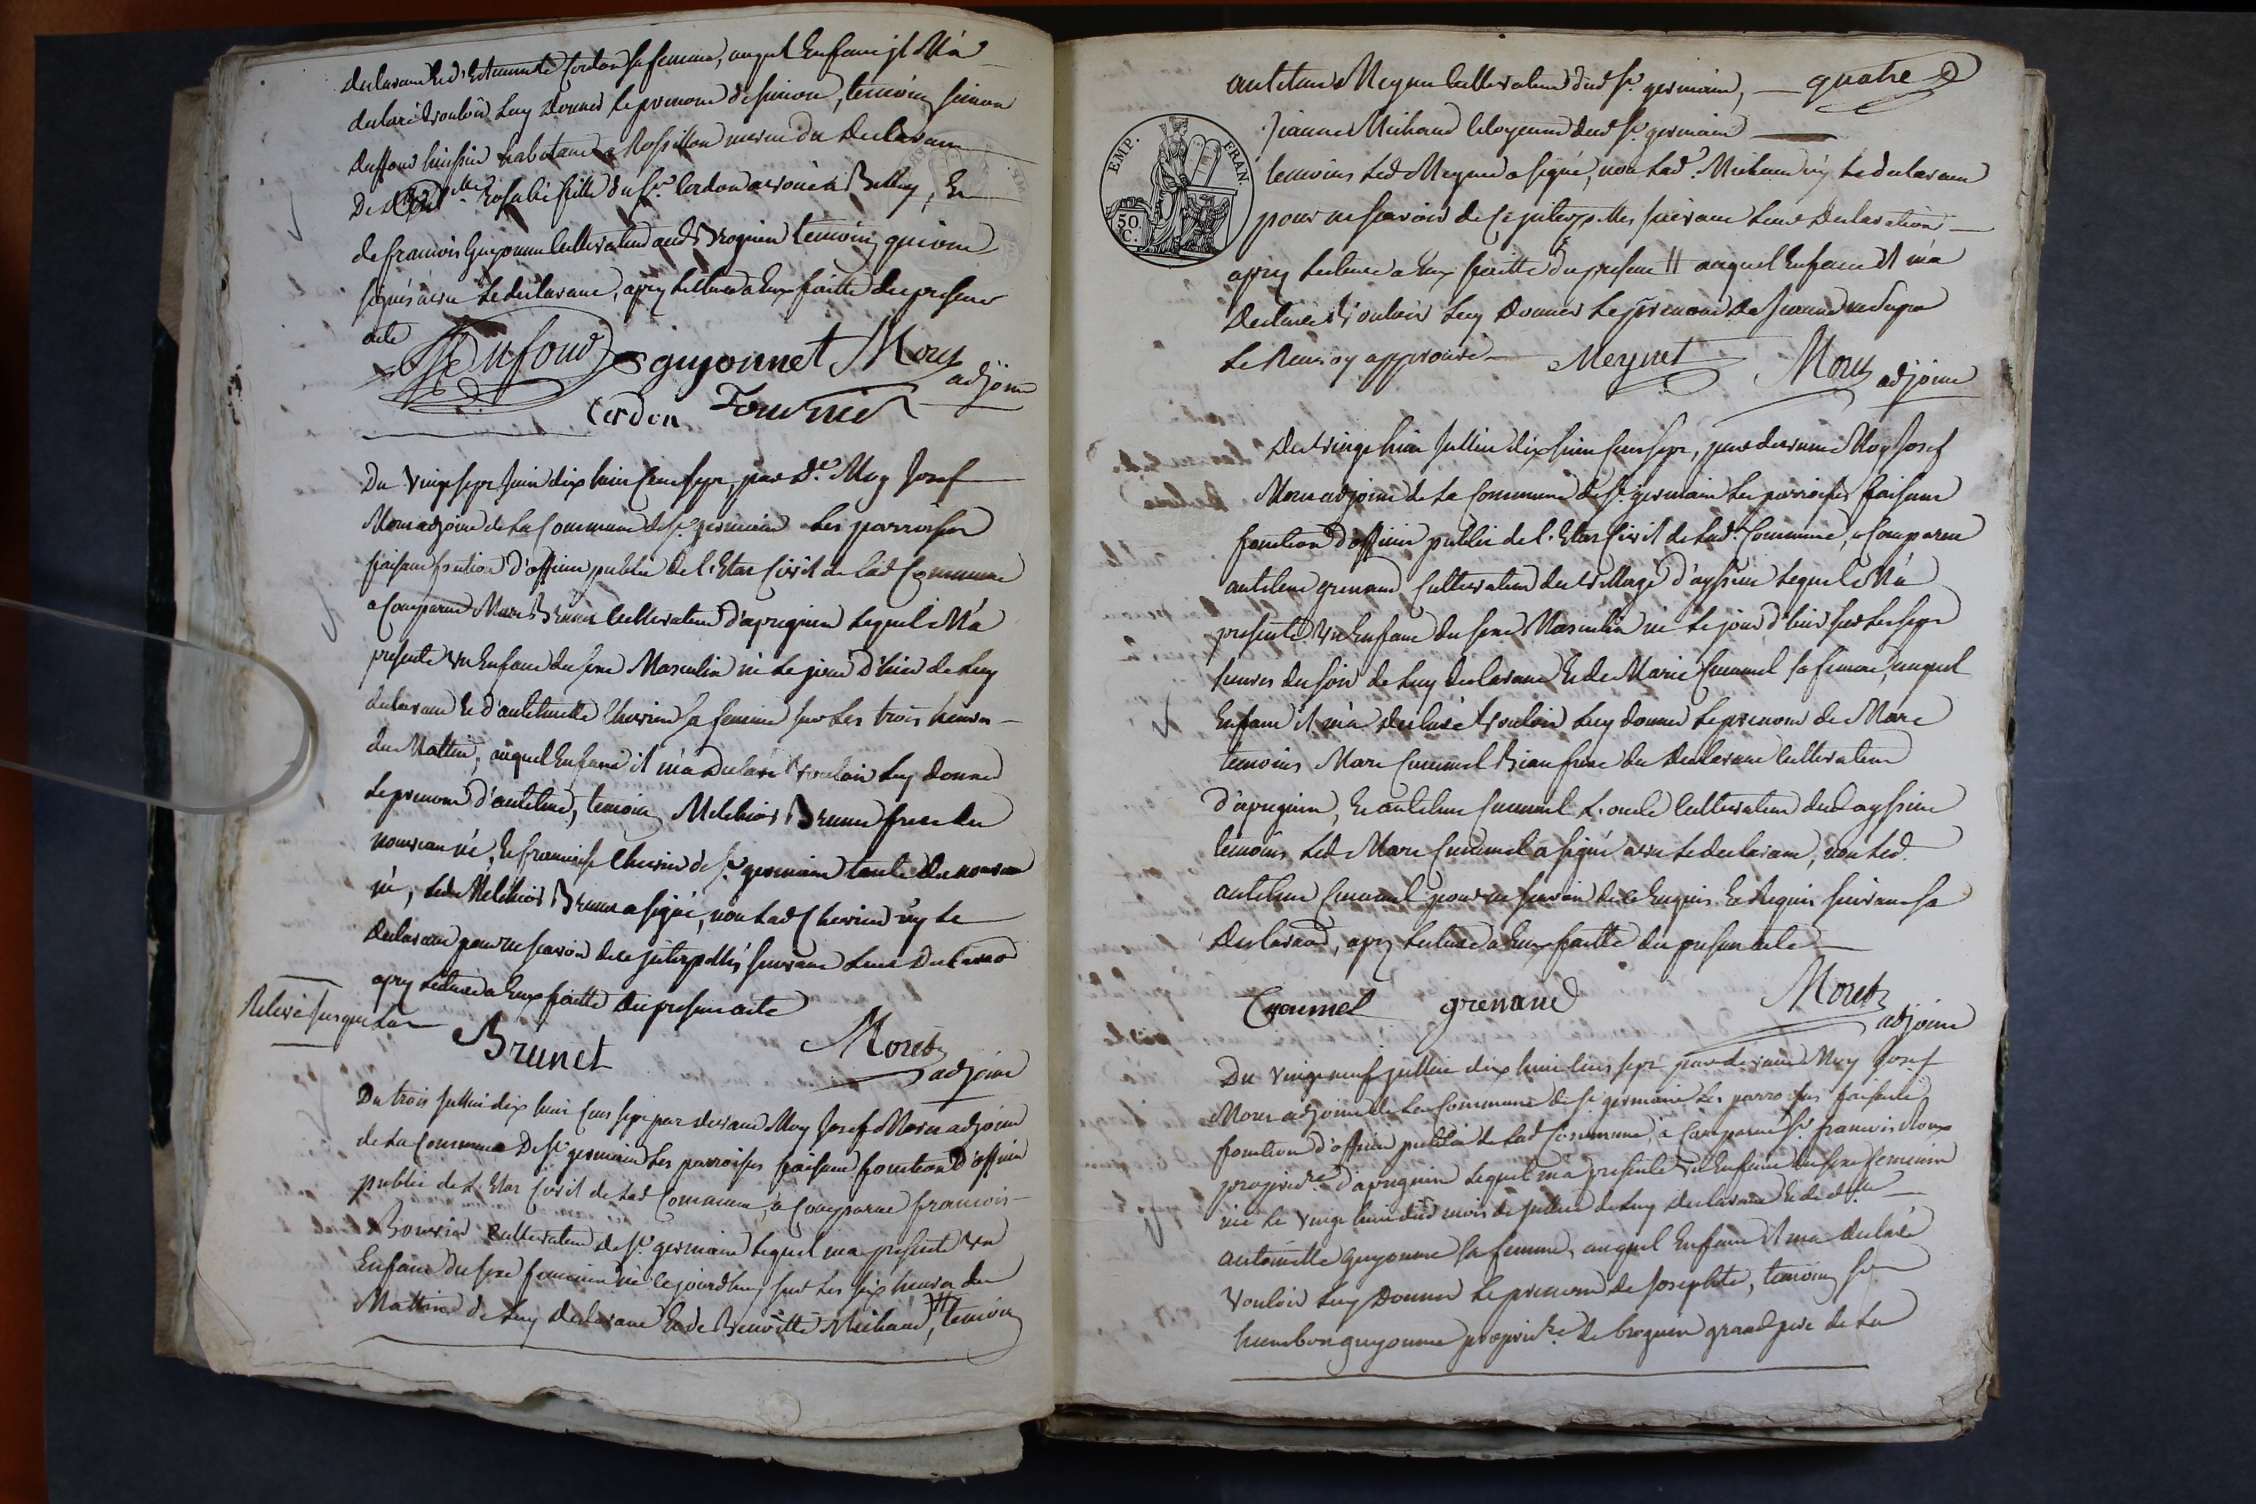 declarant et d'Estiennette Cordon sa femme, auquel Enfant il M'a
declaré vouloir Luy donner le prenom de simon, temoins simon
Duffour huissier habitant a Rossillon
De Rosalie fille du Sr. Cordon avoué à Belley, Et
de francois Guyonnet Cultivateur aud Brognin temoins qui ont
signés avec le declarant, apres lecture a Eux faitte du present
acte
Dufour guyonnet Moret
adjoint
Cordon
Du vingt sept Juin dix huit Cent sept, par dt. Moy Josef
Moret adjoint de la Commune de St. germain les parroisses
faisant fontion d'officier public de l'Etat Civil de lad Commune
a Comparu Marc Brunet Cultivateur d'apregnin lequel M'a
presenté un Enfant du sexe Masculin né le jour d'hier de Luy
declarant Et d'anthelmette Chevrier sa femme sur les trois heures
du Mattin, auquel Enfant il m'a declaré vouloir Luy donner
le prenom d'anthelme, temoins Melchior Brunet frere du
nouveau né, Et francoise Chevrier de St. germain tante du nouveau
né, led. Melchior Brunet a signé, non lad Chevrier ny le
declarant pour ne scavoir de ce interpellés suivant leur
apres lecture a Eux faitte du present acte
Relevé jusque la
Brunet Moret
adjoint
Du trois Juillet dix huit Cent sept par devant Moy Josef Moret adjoint
de la Commune De St. germain les parroisses faisant fonction d'officier
public de l'Etat Civil de lad Commune, a Comparu francois
Bouvier Cultivateur de St. germain lequel m'a presenté un
Enfant du sexe feminin né ce jourd'huy sur les six heures du
Mattin de Luy declarant Et de Benoitte Michaud, temoins
anthelme Meynet Cultivateur dud St. germain, quatre
EMP. FRAN.
50 C.
Jeanne Michaud Citoyenne dud St. germain
temoins led. Meynet a signé, non lad. Michaud ny le declarant
pour ne scavoir de ce interpellés suivant leur declaration
apres lecture a Eux faitte du present auquel Enfant il m'a
declaré vouloir Luy donner le prenom de Jeanne
le Renvoy approuvé Meynet Moret adjoint
Du vingt huit Juillet dix huit Cent sept, par devant Moy Josef
Moret adjoint de la Commune de St. germain les parroisses faisant
fonction d'officier public de l'Etat Civil de lad. Commune, a Comparu
anthelme grenand Cultivateur du village d'ayssieu lequel M'a
presenté un Enfant du sexe Masculin né le jour d'hier sur les sept
heures du soir de Luy declarant Et de Marie Cunmel sa femme, auquel
Enfant il m'a declaré vouloir Luy donner le prenom de Marc
temoins Marc Beaufrere du declarant Cultivateur
d'apregnin, Et anthelme l'oncle Cultivateur dud ayssieu
temoins led. Marc a signé avec le declarant, non led.
anthelme pour ne scavoir de ce Enquis Et Requis suivant sa
declaration, apres lecture a Eux faitte du present acte
grenand Moret
adjoint
Du vingt neuf juillet dix huit Cent sept par devant Moy Josef
Moret adjoint de la Commune de St. germain les parroisses faisant
fonction d'officier public de lad Commune, a Comparu Sr. francois Roux
propriére. d'apregnin lequel m'a presenté un Enfant du sexe feminin
née le vingt huit dud mois de juillet de Luy declarant Et de dlle
antoinette guyonnet sa femme, auquel Enfant il m'a declaré
vouloir Luy donner le prenom de Josephte, temoins Sr
humbert guyonnet propriére. de brognin grand pere de la